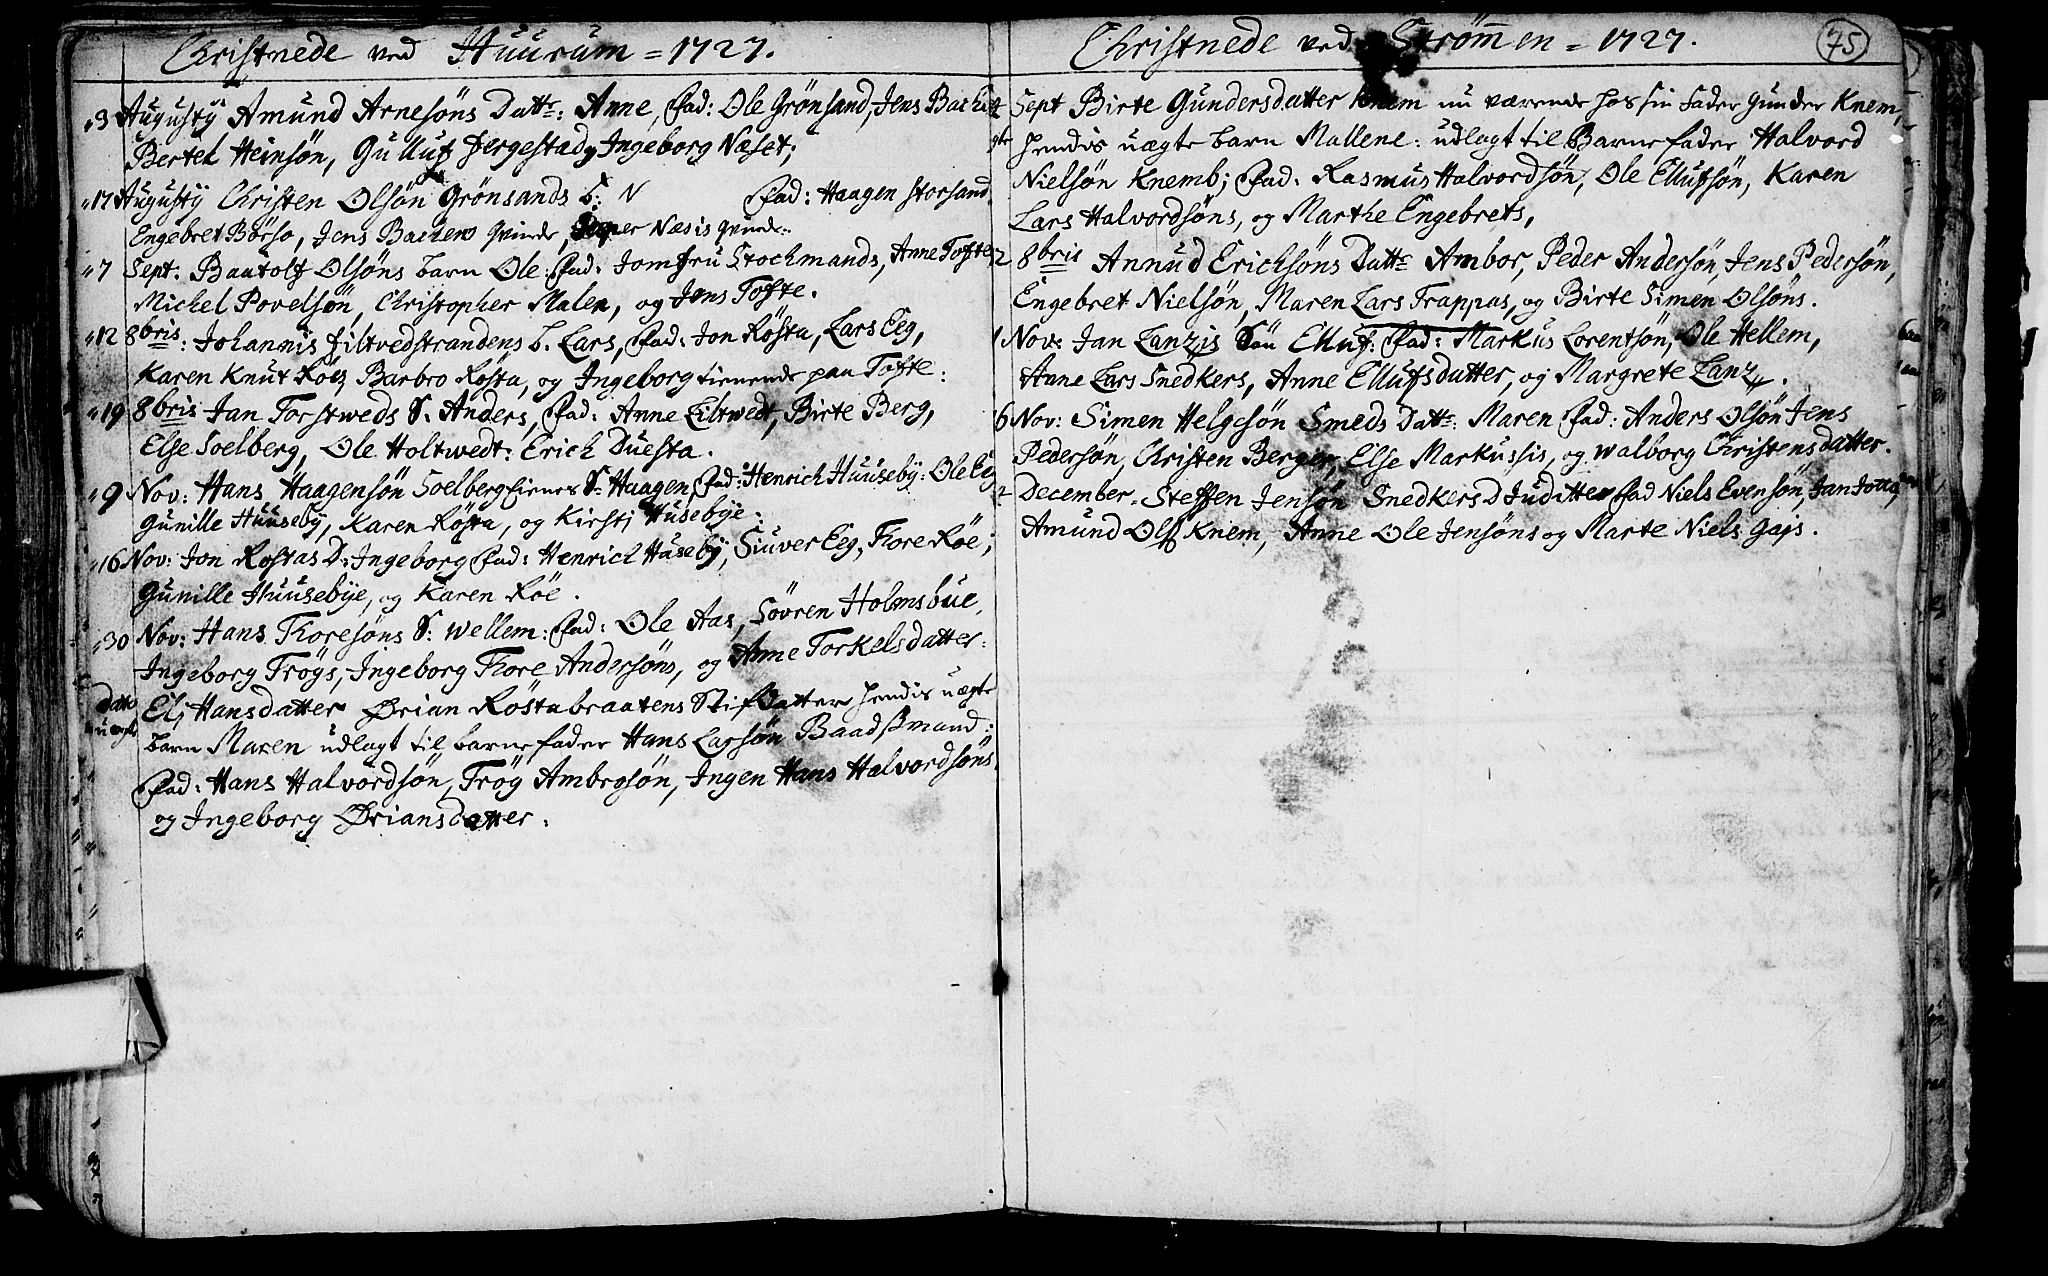 Christnede ved Huurum = 1727.
3 Augusty Amund Arnesöns Datt: Anne, Fad: Ole Grönsand, Jens Bachen
Bertel Heinsön, Gulluf Jergestad, Ingeborg Næset;
17 Augusty Christen Olsön Grönsands S: N Fad: Haagen Storsand
Engebret Börso, Jens Bachens qvinde, Næsis qvinde.
7 Sept. Bautolf Olsöns barn Ole: Fad: Jomfru Stochmands, Anne Tofte
Michel Povelsön, Christopher Malen, og Jens Tofte.
12 8bris: Johannis Filtvedstrandens b. Lars, Fad: Jon Rösta, Lars Eeg,
Karen Knut Röes, Barbro Rösta, og Ingeborg tienende paa Tofte:
19 8bris Jan Torstweds S. Anders, Fad: Anne Filtwedt, Birte Berg,
Else Soelberg, Ole Holtwedt: Erich Duesta.
9 Nov: Hans Haagensön Soelberg S: Haagen, Fad: Henrich Huuseby: Ole Eeg
Gunille Huuseby, Karen Rösta, og Kirsti Husebye:
16 Nov: Jon Rostas D: Ingeborg Fad: Henrich Huseby, Siuver Eeg, Thore Röe;
Gunille Huusebye, og Karen Röe.
30 Nov: Hans Thoresöns S: Wellem: Fad: Ole Aas, Sövren Holmsbue,
Ingeborg Trögs, Ingeborg Thore Andersöns, og Anne Torkelsdatter:
Datto
uægte
Eli Hansdatter Örian Röstabraatens Stifdatter hendis uægte
barn Maren udlagt til barnefader Hans Larsön Baadßmand:
Fad: Hans Halvordsön, Trög Ambrosön, Ingen Hans Halvordsöns
og Ingeborg Öriansdatter.
Christnede ved Strömmen = 1727.
75
Sept Birte Gundersdatter Knem nu værende hos sin Fader Gunder Knem,
hendis uægte barn Mallene: udlagt til Barnefader Halvord
Nielsön Knemb; Fad: Rasmus Halvordsön, Ole Ellufsön, Karen
Lars Halvordsöns, og Marthe Engebrets,
2 8bris Annud Ericksöns Datt: Ambor, Peder Andersön, Jens Pedersön,
Engebret Nielsön, Maren Lars Trappas, og Birte Simen Olsöns.
1 Nov: Jan Lanzis Sön Elluf: Fad: Markus Lorentsön, Ole Hellem,
Anne Lars Snedkers, Anne Ellufsdatter, og Margrete Lanz.
6 Nov: Simen Helgesön Smeds Datt: Maren Fad: Anders Olsön Jens
Pedersön, Christen Berger, Else Markussis, og Walborg Christensdatter.
2 December. Steffen Jensön Snedkers D Juditte Fad Niels Evensön, Jan
Amund Olss Knem, Anne Ole Jensöns og Marte Niels Gajs.